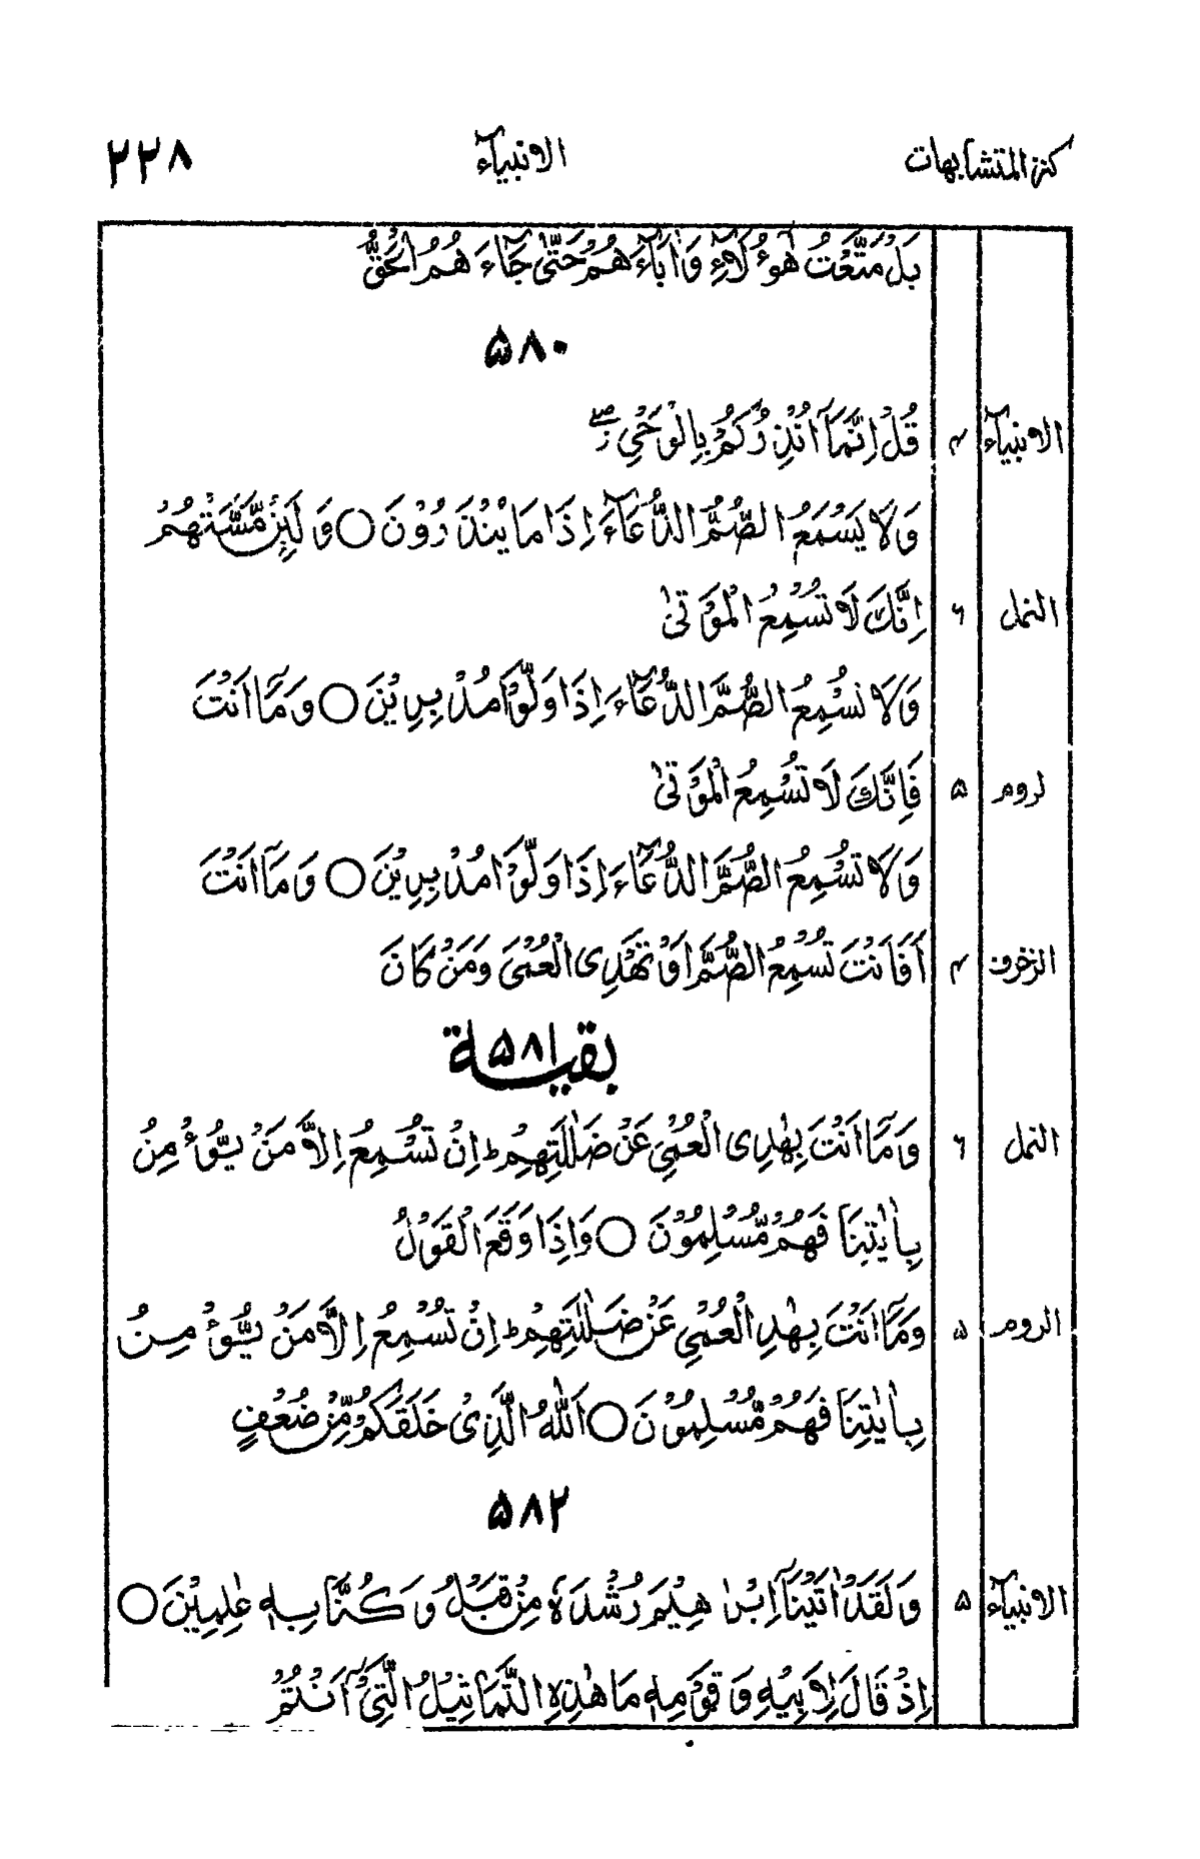 كنز المتشابهات الانبياء ۲۲۸
بَلْ مَتَّعْتُ هٰٓؤُلَآءِ وَاٰبَآءَهُمْ حَتّٰى جَآءَهُمُ الْحَقُّ
۵۸۰
الانبيآء ۴ قُلْ اِنَّمَآ اُنْذِرُكُمْ بِالْوَحْيِ ۖ
وَلَا يَسْمَعُ الصُّمُّ الدُّعَآءَ اِذَا مَا يُنْذَرُوْنَ ○ وَلَئِنْ مَّسَّتْهُمْ
النمل ۶ اِنَّكَ لَا تُسْمِعُ الْمَوْتٰى
وَلَا تُسْمِعُ الصُّمَّ الدُّعَآءَ اِذَا وَلَّوْا مُدْبِرِيْنَ ○ وَمَآ اَنْتَ
لروم ۵ فَاِنَّكَ لَا تُسْمِعُ الْمَوْتٰى
وَلَا تُسْمِعُ الصُّمَّ الدُّعَآءَ اِذَا وَلَّوْا مُدْبِرِيْنَ ○ وَمَآ اَنْتَ
الزخرف ۴ اَفَاَنْتَ تُسْمِعُ الصُّمَّ اَوْ تَهْدِى الْعُمْىَ وَمَنْ كَانَ
بقية ۵۸۱
النمل ۶ وَمَآ اَنْتَ بِهٰدِى الْعُمْيِ عَنْ ضَلٰلَتِهِمْ ؕ اِنْ تُسْمِعُ اِلَّا مَنْ يُّؤْمِنُ
بِاٰيٰتِنَا فَهُمْ مُّسْلِمُوْنَ ○ وَاِذَا وَقَعَ الْقَوْلُ
الروم ۵ وَمَآ اَنْتَ بِهٰدِ الْعُمْيِ عَنْ ضَلٰلَتِهِمْ ؕ اِنْ تُسْمِعُ اِلَّا مَنْ يُّؤْمِنُ
بِاٰيٰتِنَا فَهُمْ مُّسْلِمُوْنَ ○ اَللّٰهُ الَّذِىْ خَلَقَكُمْ مِّنْ ضَعْفٍ
۵۸۲
الانبيآء ۵ وَلَقَدْ اٰتَيْنَآ اِبْرٰهِيْمَ رُشْدَهٗ مِنْ قَبْلُ وَكُنَّا بِهٖ عٰلِمِيْنَ ○
اِذْ قَالَ لِاَبِيْهِ وَقَوْمِهٖ مَا هٰذِهِ التَّمَاثِيْلُ الَّتِىْٓ اَنْتُمْ